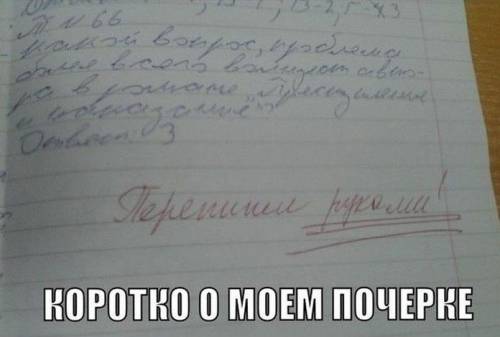 Т. №66
какой вопрос, проблема
более всего волнует авто-
ра в романе „Преступление
и наказание"?
Ответ: 3
Перепиши руками!
КОРОТКО О МОЕМ ПОЧЕРКЕ